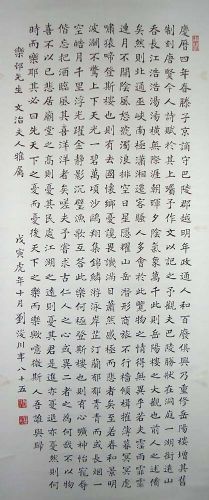 慶曆四年春滕子京謫守巴陵郡越明年政通人和百廢俱興乃重修岳陽樓增其舊
制刻唐賢今人詩賦於其上屬予作文以記之予觀夫巴陵勝狀在洞庭一湖銜遠山
吞長江浩浩湯湯橫無際涯朝暉夕陰氣象萬千此則岳陽樓之大觀也前人之述備
矣然則北通巫峽南極瀟湘遷客騷人多會於此覽物之情得無異乎若夫霪雨霏霏
連月不開陰風怒號濁浪排空日星隱耀山岳潛形商旅不行檣傾楫摧薄暮冥冥虎
嘯猿啼登斯樓也則有去國懷鄉憂讒畏譏滿目蕭然感極而悲者矣至若春和景明
波瀾不驚上下天光一碧萬頃沙鷗翔集錦鱗游泳岸芷汀蘭郁郁青青而或長煙一
空皓月千里浮光躍金靜影沉璧漁歌互答此樂何極登斯樓也則有心曠神怡寵辱
偕忘把酒臨風其喜洋洋者矣嗟夫予嘗求古仁人之心或異二者之為何哉不以物
喜不以己悲居廟堂之高則憂其民處江湖之遠則憂其君是進亦憂退亦憂然則何
時而樂耶其必曰先天下之憂而憂後天下之樂而樂歟噫微斯人吾誰與歸
樂邨先生 文治夫人雅屬
戊寅虎年十月劉浚川年八十五